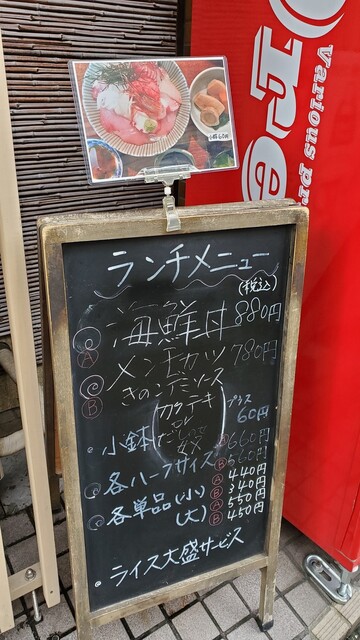 ore
Various pr
小鉢60円
ランチメニュー
(税込)
海鮮丼 880円
Ⓐ
メンチカツ 780円
きのこデミソース
Ⓑ
・小鉢 プラス
60円
各ハーフサイズ Ⓐ660円
Ⓑ560円
各単品(小) Ⓐ440円
Ⓑ340円
(大) Ⓐ550円
Ⓑ450円
・ライス大盛サービス